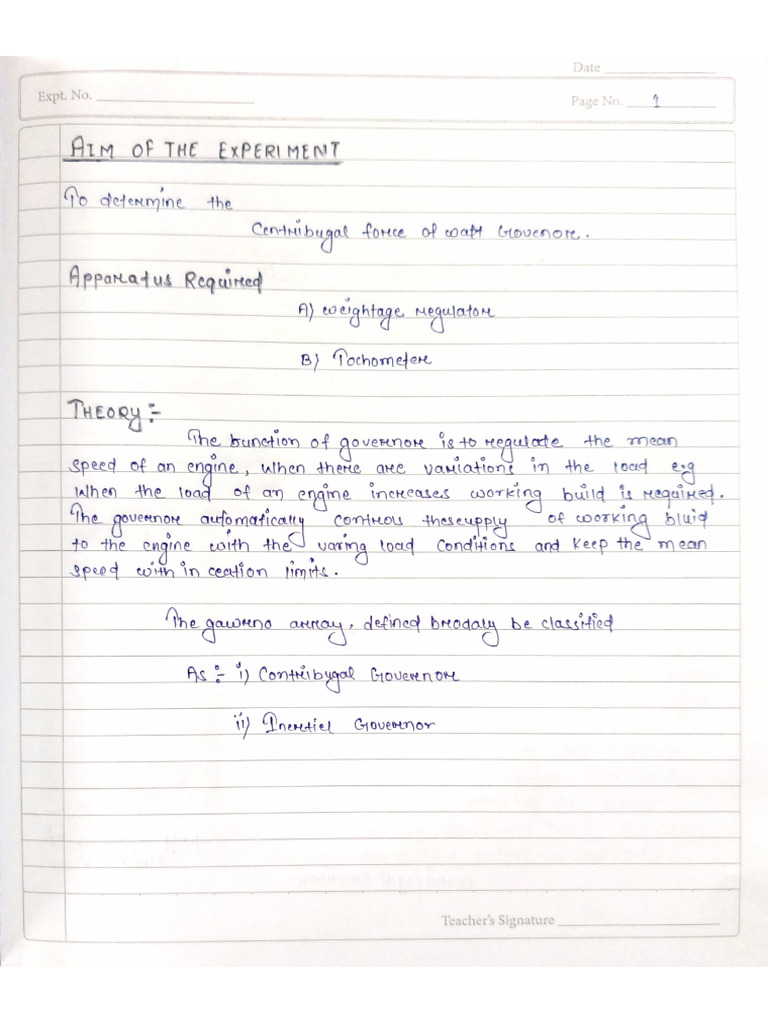 Date
Expt. No.
Page No. 1
AIM OF THE EXPERIMENT
To determine the
Centribugal force of watt Governore.
Apparatus Required
A) weightage regulatore
B) Tochometere
THEORY :-
The bunction of governore is to regulate the mean
speed of an engine, when there are variations in the load e.g
when the load of an engine increases working build is required.
The governore automatically controls thesupply of working bluid
to the engine with the varing load conditions and keep the mean
speed with in ceation limits.
The gawrno array, defined brodaly be classified
As :- i) Contribygal Governore
ii) Inertiel Governor
Teacher's Signature